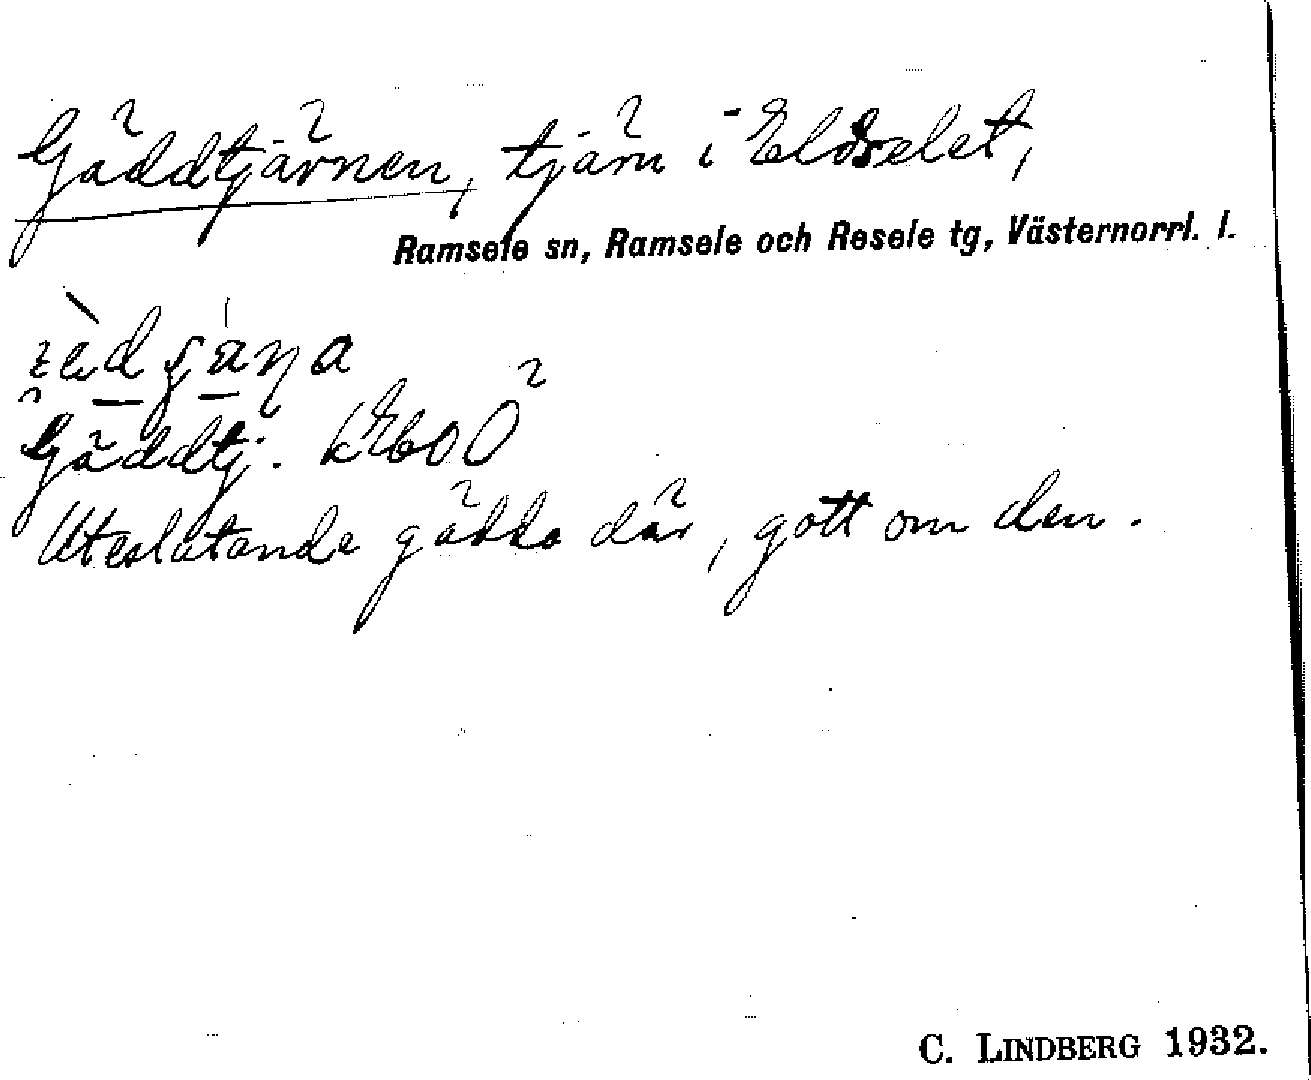 Gäddtjärnen, tjärn i Eldselet,
Ramsele sn, Ramsele och Resele tg, Västernorrl. l.
Gäddtj. kEboÖ
Uteslutande gädda där, gott om den.
C. LINDBERG 1932.